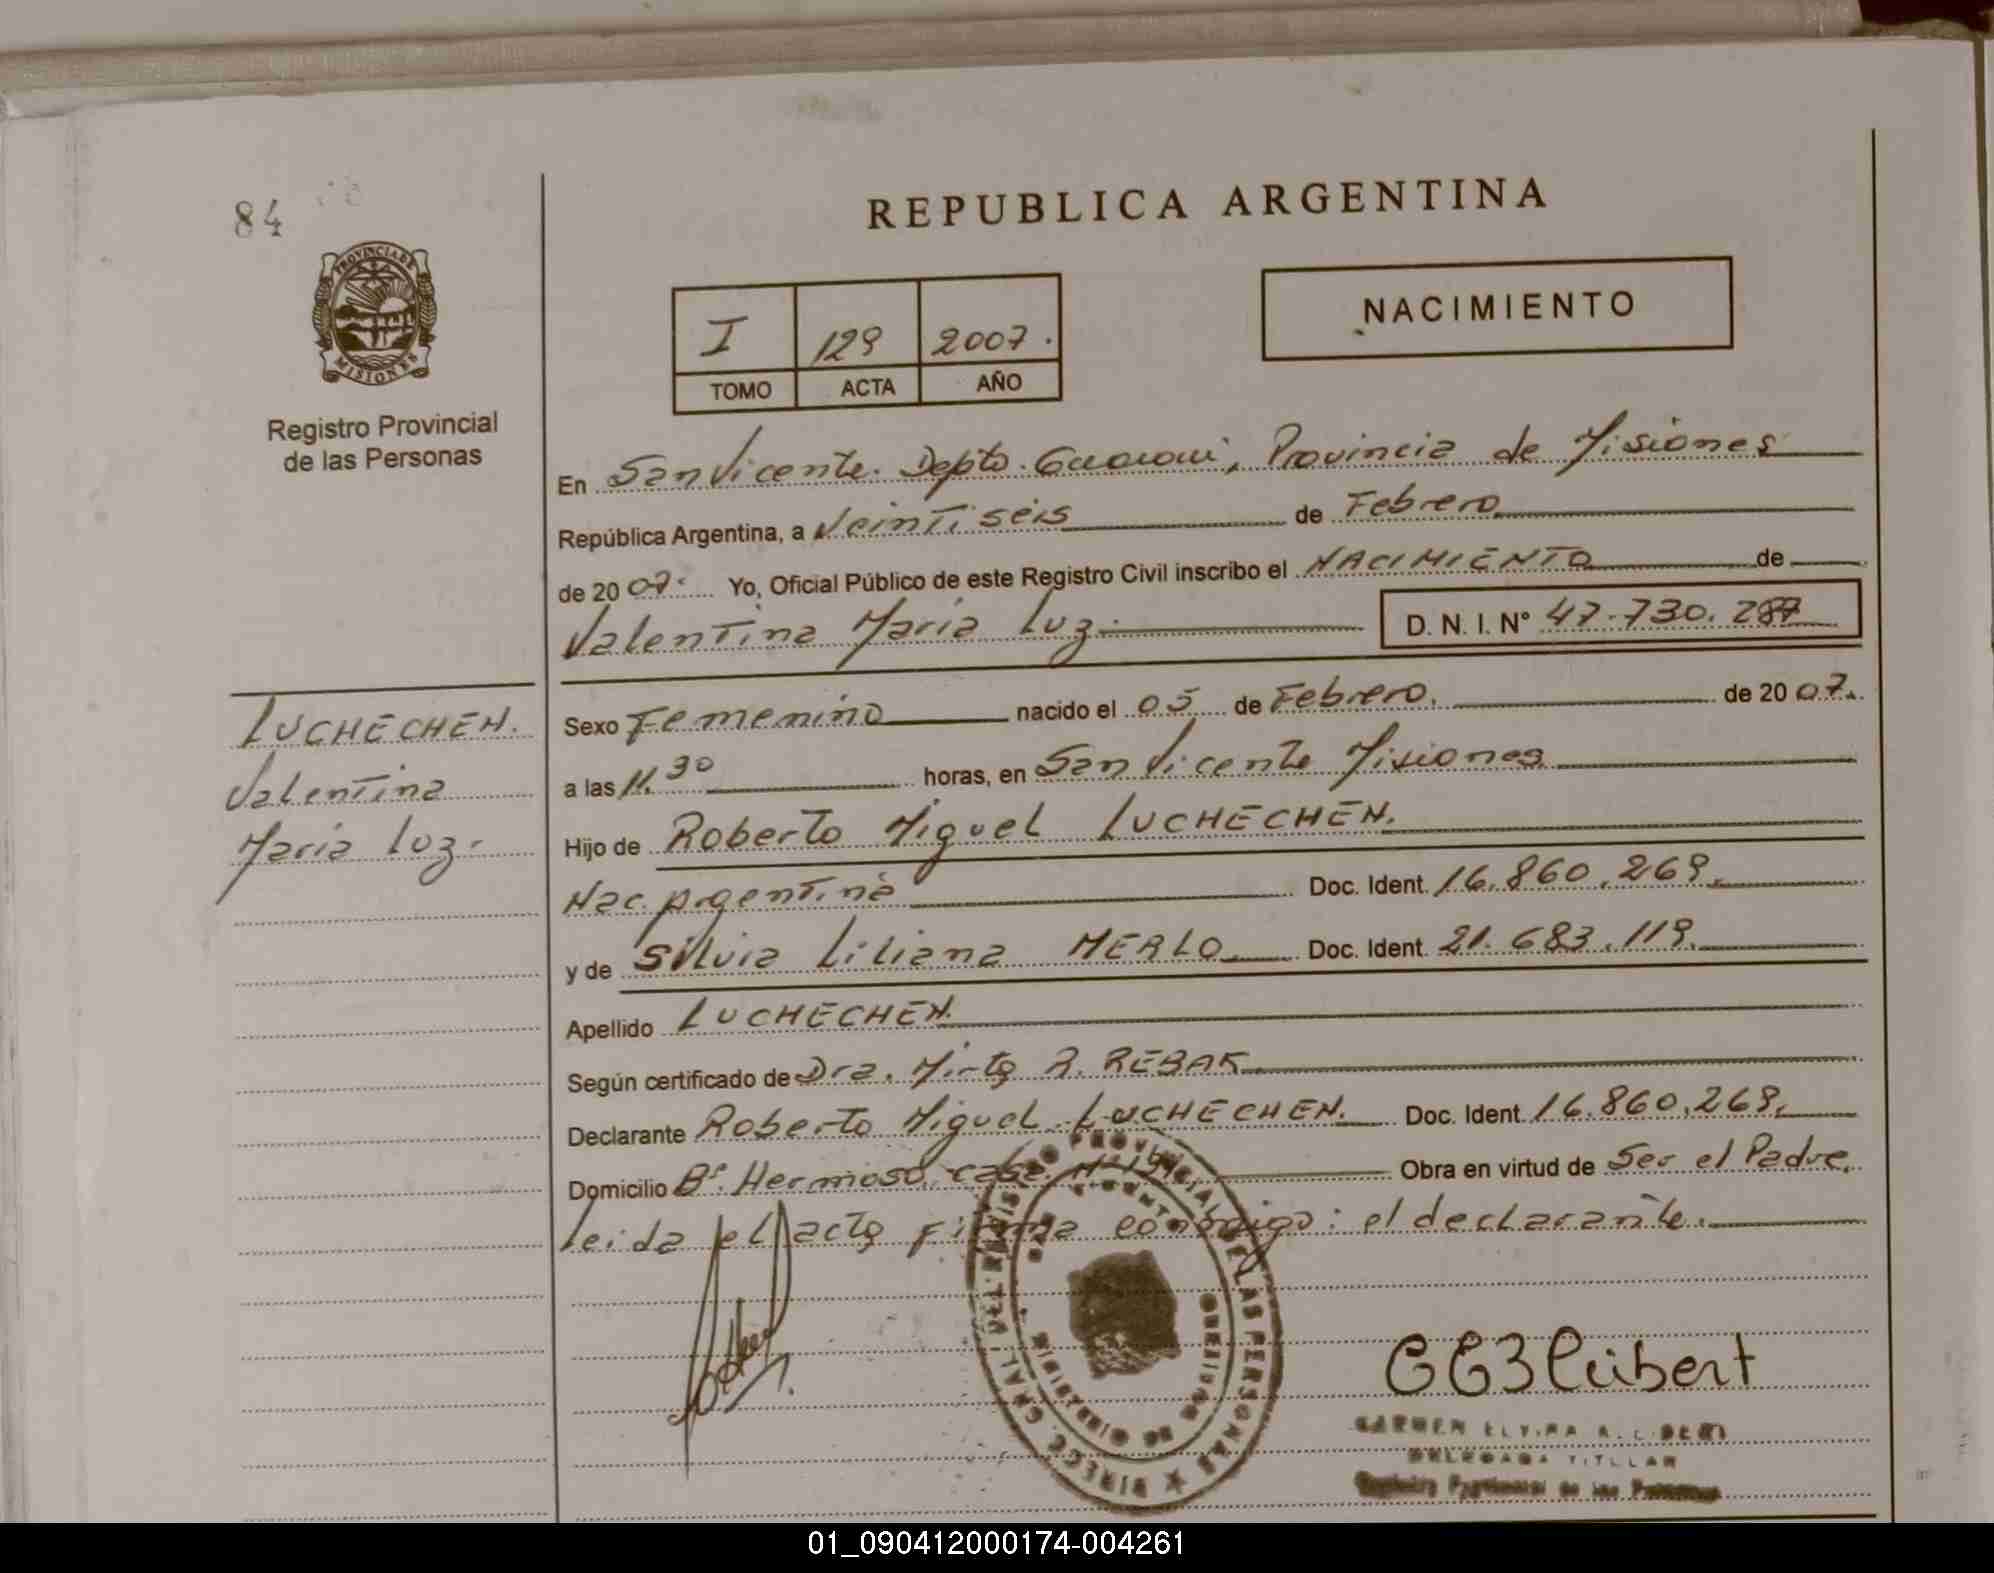 84
PROVINCIA DE
MISIONES
Registro Provincial
de las Personas
REPUBLICA ARGENTINA
I 129 2007.
TOMO ACTA AÑO
NACIMIENTO
En San Vicente. Depto. Guarani, Provincia de Misiones
República Argentina, a Veinti seis de Febrero
de 2007. Yo, Oficial Público de este Registro Civil inscribo el NACIMIENTO de
Valentina Maria Luz. D. N. I. N° 47.730.287
LUCHECHEN.
Valentina
Maria Luz.
Sexo Femenino nacido el 05 de Febrero. de 2007.
a las 11.30 horas, en San Vicente Misiones
Hijo de Roberto Miguel LUCHECHEN.
Nac. Argentina Doc. Ident. 16.860.269.
y de Silvia Liliana MERLO Doc. Ident. 21.683.119.
Apellido LUCHECHEN.
Según certificado de Dra. Mirta R. REBAK
Declarante Roberto Miguel LUCHECHEN. Doc. Ident. 16.860.269.
Domicilio B°. Hermoso, casa N° Obra en virtud de Ser el Padre.
leida el acta firma conmigo: el declarante.
DIREC. GRAL. DEL REGISTRO PROVINCIAL DE LAS PERSONAS
CARMEN ELVIRA
DELEGADA TITULAR
Registro Provincial de las Personas
01_090412000174-004261